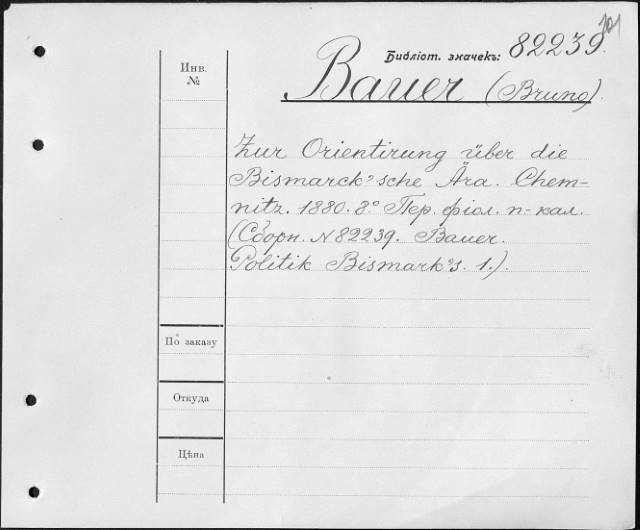 Библіот. значекъ: 82239
Инв.
№
Bauer (Bruno).
Zur Orientirung über die
Bismarck'sche Ära. Chem-
nitz. 1880. 8° Пер. фіол. п.-кал.
(Сборн. № 82239. Bauer.
Politik Bismark's. 1.).
По заказу
Откуда
Цѣна